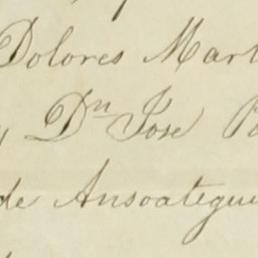 Dolores Mart
y Dn José Pa
de Ansoategui